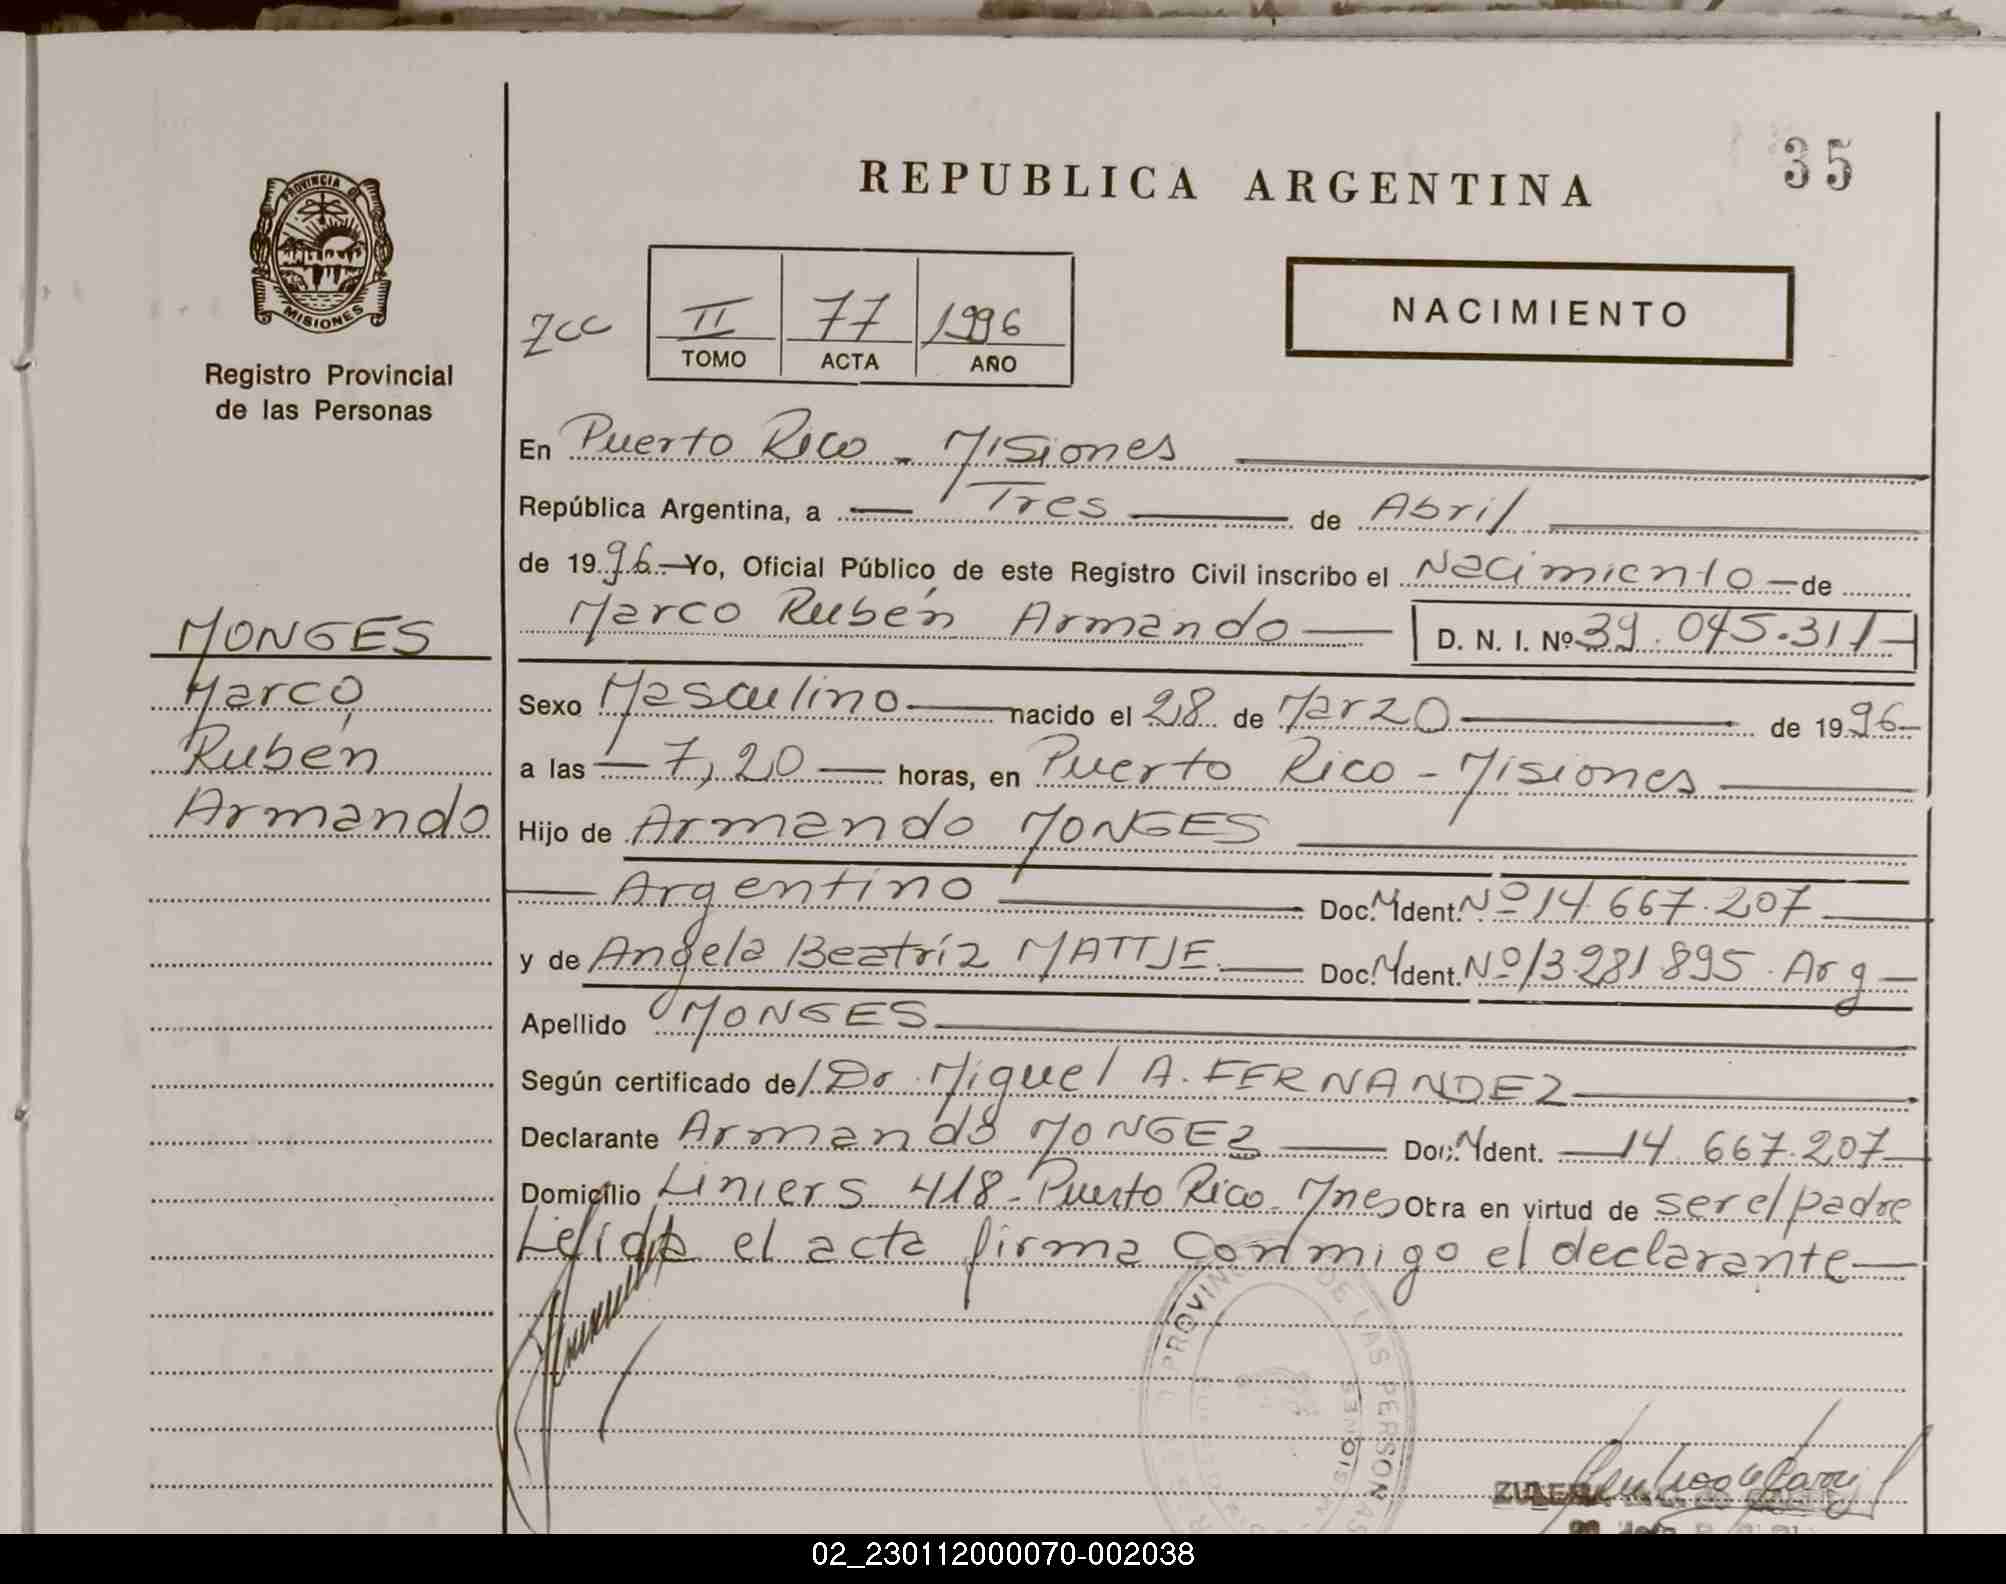 35
REPUBLICA ARGENTINA
PROVINCIA DE
MISIONES
Registro Provincial
de las Personas
Zcc
II 77 1996
TOMO ACTA AÑO
NACIMIENTO
En Puerto Rico - Misiones
República Argentina, a Tres de Abril
de 1996 Yo, Oficial Público de este Registro Civil inscribo el Nacimiento de
Marco Rubén Armando D. N. I. Nº 39.045.311
MONGES
Marco
Rubén
Armando
Sexo Masculino nacido el 28 de Marzo de 1996
a las 7,20 horas, en Puerto Rico - Misiones
Hijo de Armando MONGES
Argentino Doc. M Ident. Nº 14.667.207
y de Angela Beatríz MATTJE Doc. M Ident. Nº 13.281.895. Arg
Apellido MONGES
Según certificado de/ Dr. Miguel A. FERNANDEZ
Declarante Armando MONGES Doc. M Ident. 14.667.207
Domicilio Liniers 418 - Puerto Rico - Mnes Obra en virtud de ser el padre
Leída el acta firma conmigo el declarante
PROVINC DE LAS PERSONAS
MISIONES
02_230112000070-002038